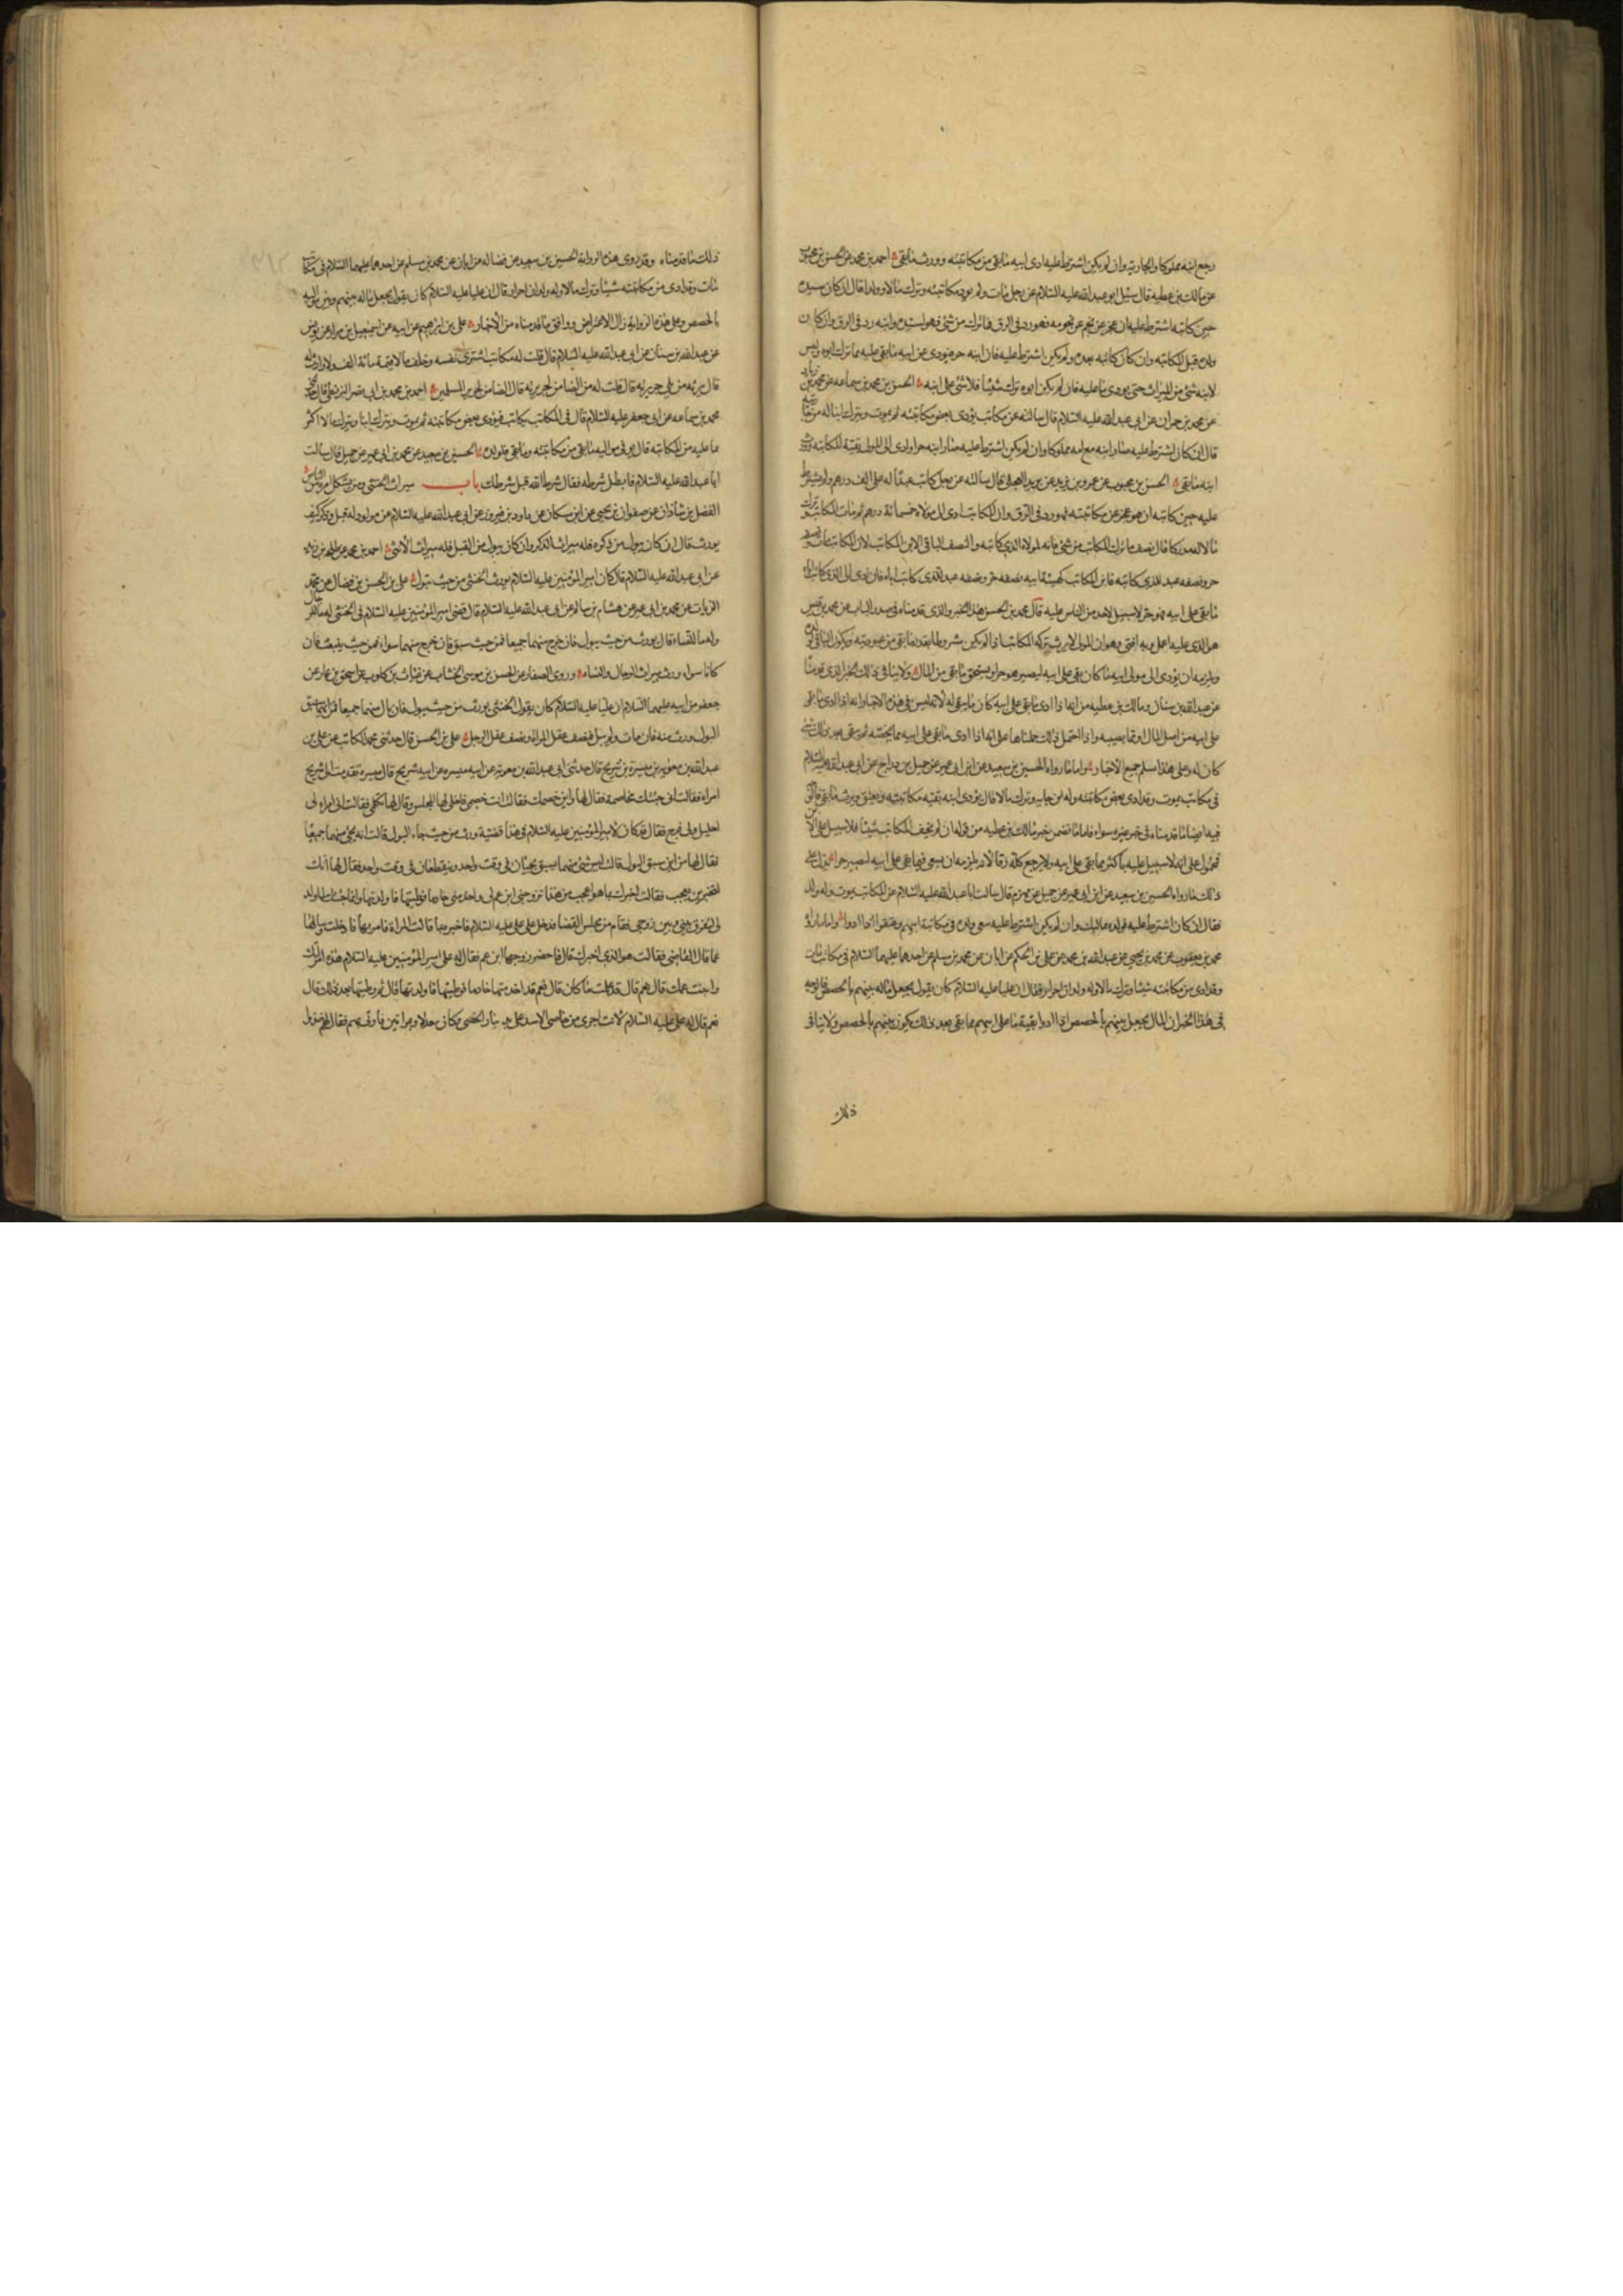 رجع ابنه مملوكا والجارية وان لم يكن اشترط عليه ادى ابنه ما بقي من مكاتبته وورث ما بقي احمد بن محمد عن الحسن بن محبوب
عن مالك بن عطيه قال سئل ابو عبد الله عليه السلام عن رجل مات ولم يود مكاتبته وترك مالا وولدا قال ان كان سيده
حين كاتبه اشترط عليه ان عجز عن نجم عن نجومه فهو رد في الرق فما ترك من شئ فهو لسيده وابنه رد في الرق وان كان
ولده قبل المكاتبه وان كان كاتبه بعده ولم يكن اشترط عليه فان ابنه حر فيودى عن ابيه ما بقي عليه مما ترك ابوه وليس
لابنه شئ من الميراث حتى يودى ما عليه فان لم يكن ابوه ترك شيئا فلا شئ على ابنه الحسن بن محمد بن سماعه عن محمد بن زياد
عن محمد بن حمران عن ابي عبد الله عليه السلام قال سالته عن مكاتب يؤدى بعض مكاتبته ثم يموت ويترك ابنا له من جاريته
قال ان كان اشترط عليه صار ابنه مع امه مملوكا وان لم يكن اشترط عليه صار ابنه حرا وادى الى المولى بقية المكاتبه وورث
ابنه ما بقي الحسن بن محبوب عن عمرو بن يزيد عن بريد العجلي قال سالته عن رجل كاتب عبدا له على الف درهم ولم يشترط
عليه حين كاتبه ان هو عجز عن مكاتبته فهو رد في الرق وان المكاتب ادى الى مولاه خمسمائة درهم ثم مات المكاتب وترك
مالا وابنا مدركا قال نصف ما ترك المكاتب من شئ فانه لمولاه الذي كاتبه والنصف الباقي لابن المكاتب لان المكاتب مات ونصفه
حر ونصفه عبد للذي كاتبه فابن المكاتب كهيئة ابيه نصفه حر ونصفه عبد للذي كاتب اباه فان ادى الى الذي كاتب اباه
ما بقي على ابيه فهو حر لا سبيل لاحد من الناس عليه قال محمد بن الحسن هذا الخبر والذي قدمناه في صدر الباب عن محمد بن قيس
هو الذي عليه اعمل وبه افتي وهو ان المولى لا يرث تركه المكاتب اذا لم يكن مشروطا بقدر ما بقي من عبوديته ويكون الباقي لولده
ويلزمه ان يؤدى الى مولى ابيه ما كان بقي على ابيه ليصير هو حرا ويستحق ما بقي من المال ولا ينافي ذلك الخبر الذي قدمنا
عن عبد الله بن سنان ومالك بن عطيه من انه اذا ادى ما بقي على ابيه كان ما يبقى له لانه ليس في هذه الاخبار انه اذا ادى ما بقي
على ابيه من اصل المال او مما يصيبه واذا احتمل ذلك حملناها على انه اذا ادى ما بقي على ابيه مما يخصه ثم يبقى بعد ذلك شئ
كان له وعلى هذا سلم جميع الاخبار واما ما رواه الحسين بن سعيد عن ابن ابي عمير عن جميل بن دراج عن ابي عبد الله عليه السلام
في مكاتب يموت وقد ادى بعض مكاتبته وله ابن من جاريه وترك مالا قال يؤدى ابنه بقيه مكاتبته ويعتق ويرث ما بقي فالوجه
فيه ايضا ما قدمناه في خبر غيره سواء فاما ما تضمن خبر مالك بن عطيه من قوله ان لم يخلف المكاتب شيئا فلا سبيل على الابن
فمحمول على انه لا سبيل عليه باكثر مما بقي على ابيه ولا يرجع كله رقا لانه يلزمه ان يسعى فيما بقي على ابيه ليصير حرا يدل على
ذلك ما رواه الحسين بن سعيد عن ابن ابي عمير عن جميل عن مهزم قال سالت ابا عبد الله عليه السلام عن المكاتب يموت وله ولد
فقال ان كان اشترط عليه فولده مماليك وان لم يكن اشترط عليه سعى ولده في مكاتبة ابيهم وعتقوا اذا ادوا واما ما رواه
محمد بن يعقوب عن محمد بن يحيى عن عبد الله بن محمد عن علي بن الحكم عن ابان عن محمد بن مسلم عن احدهما عليهما السلام في مكاتب مات
وقد ادى من مكاتبته شيئا وترك مالا وله ولدان احرار فقال ان عليا عليه السلام كان يقول يجعل ماله بينهم بالحصص فالوجه
في هذا الخبر ان المال يجعل بينهم بالحصص اذا ادوا بقية ما على ابيهم مما بقي بعد ذلك يكون بينهم بالحصص ولا ينافي
ذلك
ذلك ما قدمناه وقد روى هذه الرواية الحسين بن سعيد عن فضاله عن ابان عن محمد بن مسلم عن احدهما عليهما السلام في مكاتب
مات وقد ادى من مكاتبته شيئا وترك مالا وله ولدان احرار قال ان عليا عليه السلام كان يقول يجعل ماله بينهم وبين مواليه
بالحصص وعلى هذه الرواية زال الاعتراض ووافق ما قدمناه من الاخبار علي بن ابرهيم عن ابيه عن اسمعيل بن مرار عن يونس
عن عبد الله بن سنان عن ابي عبد الله عليه السلام قال قلت له مكاتب اشترى نفسه وخلف مالا قيمته مائة الف ولا وارث له
قال يرثه من يلي جريرته قال قلت له من الضامن لجريرته قال الضامن لجرائر المسلمين احمد بن محمد بن ابي نصر البزنطي قال
محمد بن سماعه عن ابي جعفر عليه السلام قال في المكاتب يكاتب فيؤدى بعض مكاتبته ثم يموت ويترك ابنا ويترك مالا اكثر
مما عليه من المكاتبه قال يوفى مواليه ما بقي من مكاتبته وما بقي فلولده الحسين بن سعيد عن محمد بن ابي عمير عن جميل قال سالت
ابا عبد الله عليه السلام فابطل شرطه فقال شرط الله قبل شرطك باب ميراث الخنثى ومن يشكل امره من الناس
الفضل بن شاذان عن صفوان بن يحيى عن ابن مسكان عن داود بن فرقد عن ابي عبد الله عليه السلام عن مولود له قبل وذكر كيف
يورث قال ان كان يبول من ذكره فله ميراث الذكر وان كان يبول من القبل فله ميراث الانثى احمد بن محمد عن طلحه بن زيد
عن ابي عبد الله عليه السلام قال كان امير المؤمنين عليه السلام يورث الخنثى من حيث يبول علي بن الحسن بن فضال عن محمد
الزيات عن محمد بن ابي عمير عن هشام بن سالم عن ابي عبد الله عليه السلام قال قضى امير المؤمنين عليه السلام في الخنثى له ما للرجال
وله ما للنساء قال يورث من حيث يبول فان خرج منهما جميعا فمن حيث سبق فان خرج منهما سواء فمن حيث ينبعث فان
كانا سواء ورث ميراث الرجال والنساء وروى الصفار عن الحسن بن موسى الخشاب عن غياث بن كلوب عن اسحق بن عمار عن
جعفر عن ابيه عليهما السلام ان عليا عليه السلام كان يقول الخنثى يورث من حيث يبول فان بال منهما جميعا فمن ايهما سبق
البول ورث منه فان مات ولم يبل فنصف عقل المراة ونصف عقل الرجل علي بن الحسن قال حدثني محمد الكاتب عن علي بن
عبد الله بن معوية بن ميسرة بن شريح قال حدثني ابي عبد الله بن معوية عن ابيه ميسره عن ابيه شريح قال ميسره تقدمت الى شريح
امراه فقالت اني جئتك مخاصمة فقال لها واين خصمك فقالت انت خصمي فاخلى لها المجلس وقال لها تكلمي فقالت اني امراه لي
احليل ولي فرج فقال قد كان لامير المؤمنين عليه السلام في هذا قضية ورث من حيث جاء البول قالت انه يجئ منهما جميعا
فقال لها من اين سبق البول قالت ليس شئ منهما يسبق يجيئان في وقت واحد وينقطعان في وقت واحد فقال لها انك
لتخبرين بعجب فقالت اخبرك بما هو اعجب من هذا تزوجني ابن عم لي واخدمني خادما فوطيتها فاولدتها وانما جئتك لما ولد
لي لتفرق بيني وبين زوجي فقام من مجلس القضاء فدخل على علي عليه السلام فاخبره بما قالت المراة فامر بها فادخلت وسالها
عما قال القاضي فقالت هو الذي اخبرك قال فاحضر زوجها ابن عمها فقال له علي امير المؤمنين عليه السلام هذه امراتك
وابنت عمك قال نعم قال قد علمت ما كان قال نعم قد اخدمتها خادما فوطيتها فاولدتها قال ثم وطيتها بعد ذلك قال
نعم قال له علي عليه السلام لانت اجرى من خاصي الاسد علي بدينار الخصي وكان معدلا وبمراتين فاوتي بهم فقال لهم خذوا